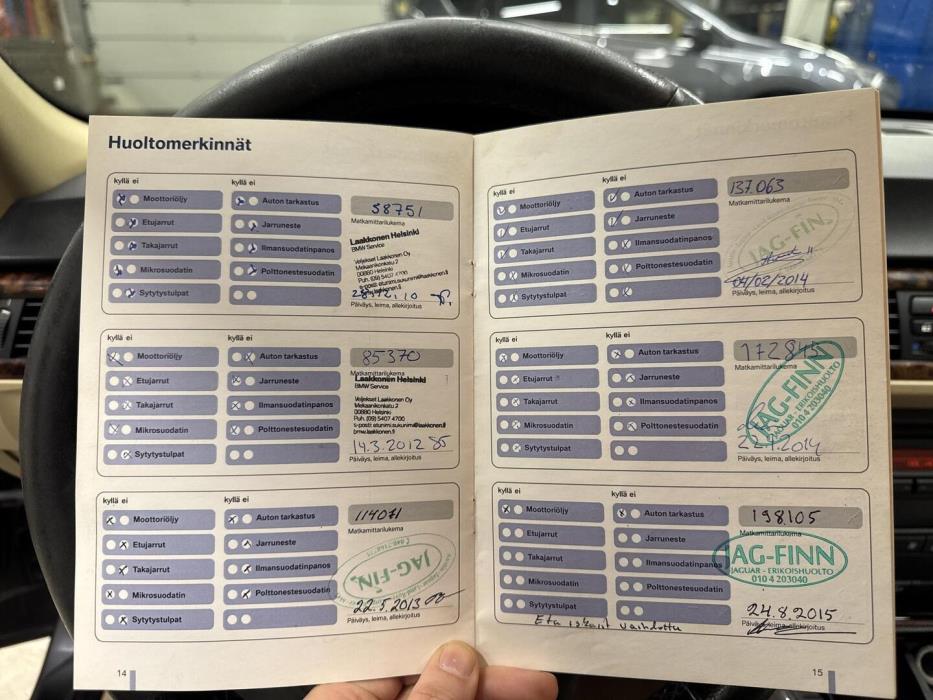 Huoltomerkinnät
kyllä ei
kyllä ei
Moottoriöljy
Auton tarkastus
58751
Etujarrut
Jarruneste
Matkamittarilukema
Takajarrut
Ilmansuodatinpanos
Mikrosuodatin
Polttonestesuodatin
Sytytystulpat
Laakkonen Helsinki
BMW Service
Veljekset Laakkonen Oy
Mekaanikonkatu 2
00880 Helsinki
Puh. (09) 5407 4700
Päiväys, leima, allekirjoitus
kyllä ei
kyllä ei
Moottoriöljy
Auton tarkastus
85370
Etujarrut
Jarruneste
Matkamittarilukema
Takajarrut
Ilmansuodatinpanos
Mikrosuodatin
Polttonestesuodatin
Sytytystulpat
Laakkonen Helsinki
BMW Service
Veljekset Laakkonen Oy
Mekaanikonkatu 2
00880 Helsinki
Puh. (09) 5407 4700
s-posti: etunimi.sukunimi@laakkonen.fi
bmw.laakkonen.fi
14.3.2012
Päiväys, leima, allekirjoitus
kyllä ei
kyllä ei
Moottoriöljy
Auton tarkastus
114071
Etujarrut
Jarruneste
Matkamittarilukema
Takajarrut
Ilmansuodatinpanos
Mikrosuodatin
Polttonestesuodatin
Sytytystulpat
JAG-FINN
22.5.2013
Päiväys, leima, allekirjoitus
14
kyllä ei
kyllä ei
Moottoriöljy
Auton tarkastus
137.063
Etujarrut
Jarruneste
Matkamittarilukema
Takajarrut
Ilmansuodatinpanos
Mikrosuodatin
Polttonestesuodatin
Sytytystulpat
JAG-FINN
04/02/2014
Päiväys, leima, allekirjoitus
kyllä ei
kyllä ei
Moottoriöljy
Auton tarkastus
Etujarrut
Jarruneste
Matkamittarilukema
Takajarrut
Ilmansuodatinpanos
Mikrosuodatin
Polttonestesuodatin
Sytytystulpat
JAG-FINN
JAGUAR - ERIKOISHUOLTO
010 4 203040
Päiväys, leima, allekirjoitus
kyllä ei
kyllä ei
Moottoriöljy
Auton tarkastus
198.105
Etujarrut
Jarruneste
Matkamittarilukema
Takajarrut
Ilmansuodatinpanos
Mikrosuodatin
Polttonestesuodatin
Sytytystulpat
JAG-FINN
JAGUAR - ERIKOISHUOLTO
010 4 203040
24.8.2015
Päiväys, leima, allekirjoitus
Eta iskarit vaihdettu
15